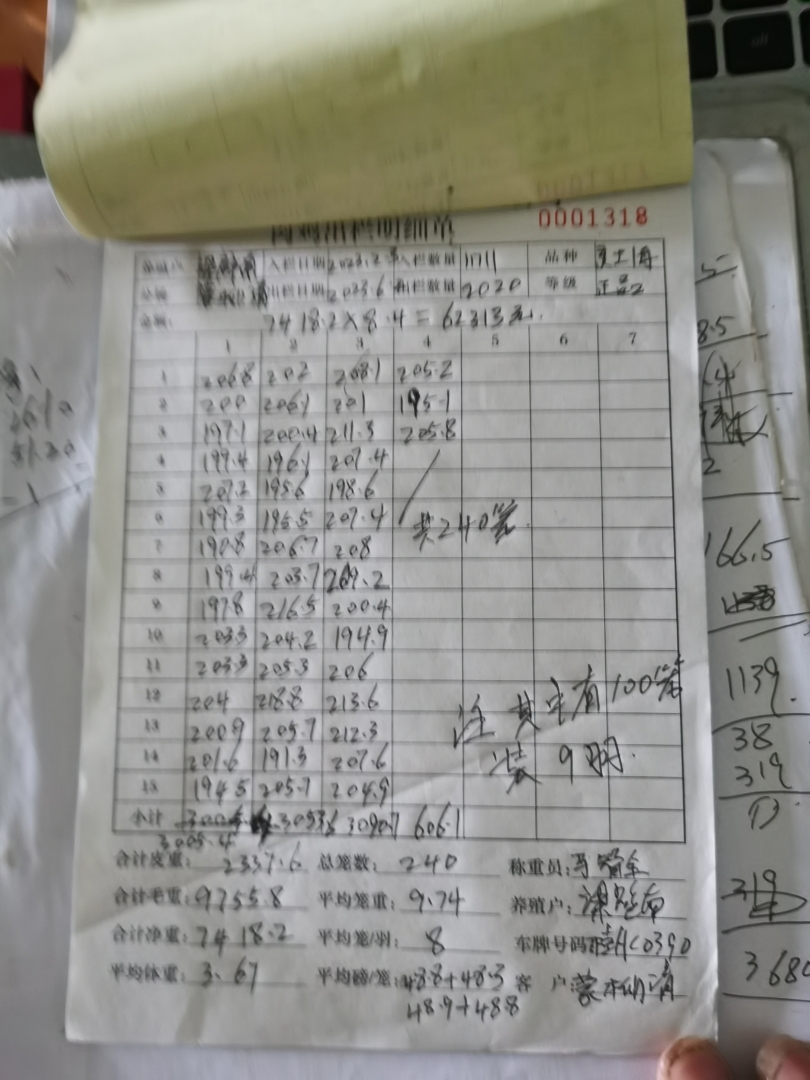 0001318
肉鸡出栏明细单
入栏日期 2023.2 入栏数量 11711 品种
出栏日期 2023.6 出栏数量 2020 等级 正品2
金额: 7418.2×8.4=62313元.
1 2 3 4 5 6 7
1 206.8 202 208.1 205.2
2 200 206.1 201 195.1
3 197.1 200.4 211.3 205.8
4 199.4 196.1 207.4
5 207.2 195.6 198.6
6 199.3 195.5 207.4 共240笼
7 190.8 206.7 208
8 199.4 203.7 209.2
9 197.8 216.5 200.4
10 203.3 204.2 194.9
11 203.3 205.3 206
12 204 218.8 213.6 注其中有100笼
13 200.9 205.7 212.3
14 201.6 191.3 207.6 装9羽.
15 194.5 205.7 204.9
小计 3053.6 3090.7 606.1
3005.4
合计皮重: 2337.6 总笼数: 240 称重员:
合计毛重: 9755.8 平均笼重: 9.74 养殖户:
合计净重: 7418.2 平均笼/羽: 8 车牌号码 C0390
平均体重: 3.67 平均磅/笼: 48.8+48.3 客户
48.9+48.8
8.5
2
166.5
1139.
38
319
319
3680